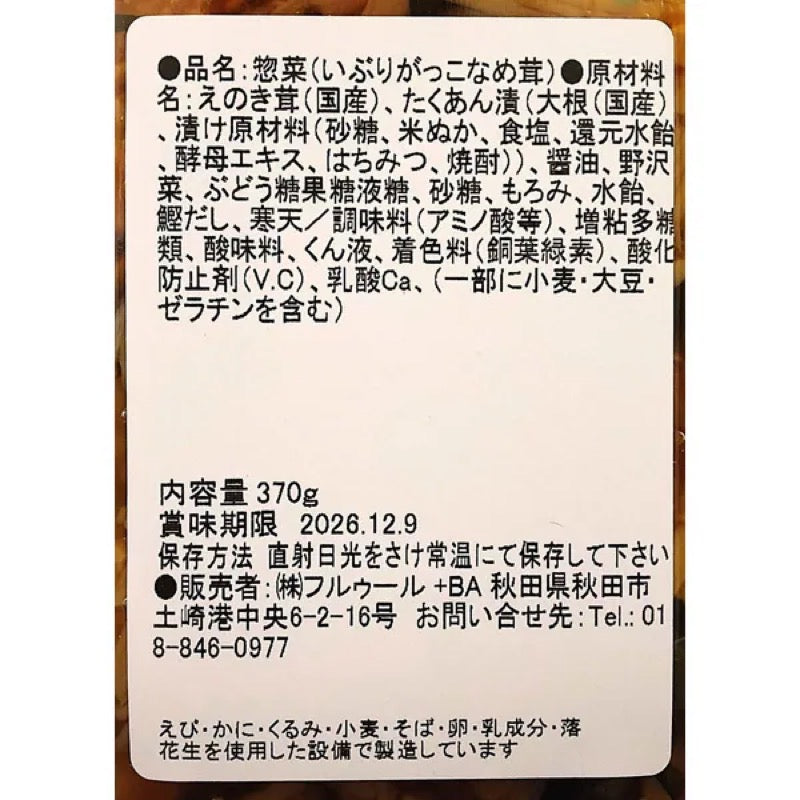 ●品名:惣菜(いぶりがっこなめ茸)●原材料
名:えのき茸(国産)、たくあん漬(大根(国産)
、漬け原材料(砂糖、米ぬか、食塩、還元水飴
、酵母エキス、はちみつ、焼酎))、醤油、野沢
菜、ぶどう糖果糖液糖、砂糖、もろみ、水飴、
鰹だし、寒天/調味料(アミノ酸等)、増粘多糖
類、酸味料、くん液、着色料(銅葉緑素)、酸化
防止剤(V.C)、乳酸Ca、(一部に小麦・大豆・
ゼラチンを含む)
内容量 370g
賞味期限 2026.12.9
保存方法 直射日光をさけ常温にて保存して下さい
●販売者:㈱フルゥール +BA 秋田県秋田市
土崎港中央6-2-16号 お問い合せ先:Tel.: 01
8-846-0977
えび・かに・くるみ・小麦・そば・卵・乳成分・落
花生を使用した設備で製造しています